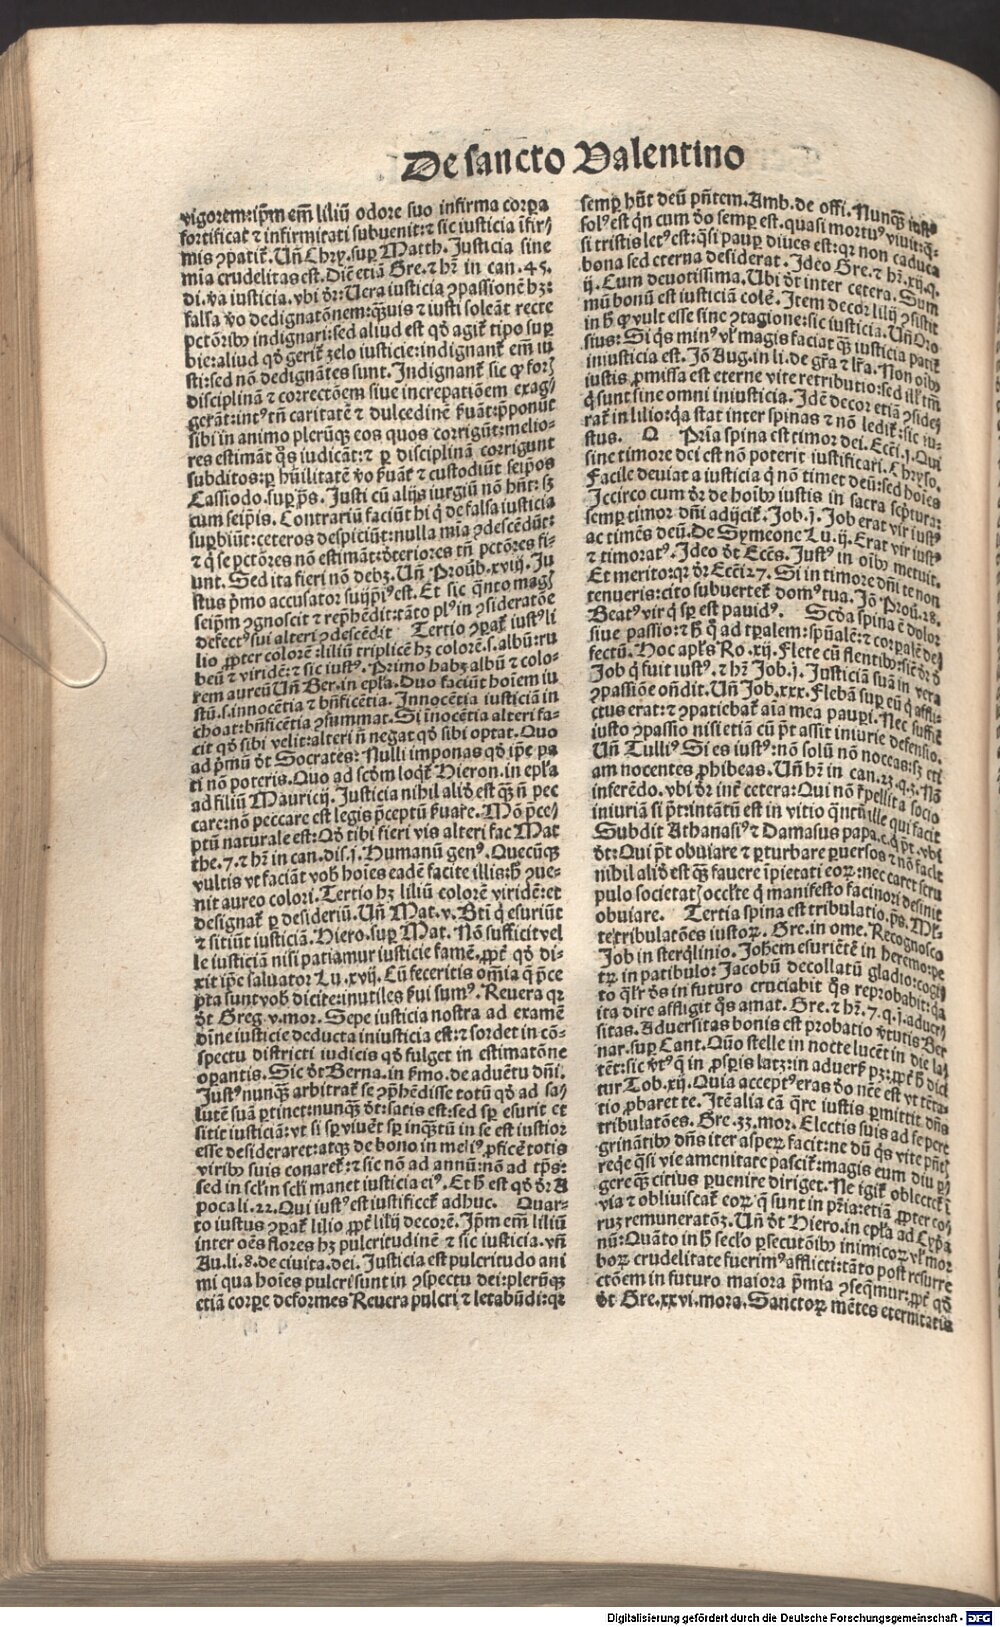 De sancto Valentino
vigorem: ip̄m em̄ liliū odore suo infirma corpa
fortificat ⁊ infirmitati subuenit: ⁊ sic iusticia īfir⸗
mis ꝯpatit᷑. Un̄ Chry. sup Matth. Justicia sine
mīa crudelitas est. Diē etiā Gre. ⁊ hr̄ in can. 45.
di. ꝟa iusticia. vbi dr̄: Uera iusticia ꝯpassionē hꝫ:
falsa ꝟo dedignatōnem: quis ⁊ iusti soleāt recte
pctōribꝰ indignari: sed aliud est qd̄ agit᷑ tipo sup
bie: aliud qd̄ gerit᷑ zelo iusticie: indignant᷑ em̄ iu
sti: sed nō dedignātes sunt. Indignant᷑ sic ꝙ for⸗
disciplinā ⁊ correctōem siue increpatiōem exag⸗
gerāt: intꝰ tn̄ caritatē ⁊ dulcedinē ẜuāt: p̄ponūt
sibi in animo plerūqꝫ eos quos corrigūt: melio⸗
res estimāt q̄s iudicāt: ⁊ ꝑ disciplinā corrigunt
subditos: ꝑ hūilitatē ꝟo ẜuāt᷑ ⁊ custodiūt seip̄os
Cassiodo. sup p̄s. Justi cū alijs iurgiū nō hn̄t: sꝫ
cum seip̄is. Contrariū faciūt hi q̇ de falsa iusticia
supbiūt: ceteros despiciūt: nulla mīa ꝯdescēdūt:
⁊ q̇ se pctōres nō estimāt: deteriores tn̄ pctōres fi⸗
unt. Sed ita fieri nō debꝫ. Un̄ Proub. xviij. Ju
stus p̄mo accusator suijp̄iꝰ est. Et sic q̄nto mag⸗
seip̄m ꝯgnoscit ⁊ rep̄hēdit: tāto plꝰ in ꝯsideratōe
defectꝰ sui alteri ꝯdescēdit Tertio ꝯpat᷑ iustꝰ li
lio ꝓpter colorē: liliū triplicē hꝫ colorē. s. albū: ru
beū ⁊ viridē: ⁊ sic iustꝰ. Primo habꝫ albū ⁊ colo⸗
rem aureū Un̄ Ber. in epl̄a. Duo faciūt hoīem iu
stū. s. innocētia ⁊ bn̄ficētia. Innocētia iusticiā in
choat: bn̄ficētia ꝯsummat. Si īnocētia alteri fa⸗
cit qd̄ sibi velit: alteri n̄ negat qd̄ sibi optat. Quo
ad p̄mū dt Socrates: Nulli imponas qd̄ ip̄e pa
ti nō poteris. Quo ad scd̄m loqt᷑ Hieron. in epl̄a
ad filiū Mauricij. Justicia nihil aliđ est qꝫ n̄ pec
care: nō peccare est legis p̄ceptū ẜuare. Mō p̄ce⸗
ptū naturale est: Qd̄ tibi fieri vis alteri fac Mat
the. 7. ⁊ hr̄ in can. dis. j. Humanū genꝰ. Quecūqꝫ
vultis vt faciāt vob̄ hoīes eadē facite illis: h̄ ꝯue⸗
nit aureo colori. Tertio hꝫ liliū colorē viridē: et
designat᷑ ꝑ desideriū. Un̄ Mat. v. Bti q̇ esuriūt
⁊ sitiūt iusticiā. Hiero. sup Mat. Nō sufficit vel
le iusticiā nisi patiamur iusticie famē. ꝓpt᷑ qd̄ di⸗
xit ip̄e saluator Lu. xvij. Cū feceritis om̄ia q̄ p̄ce
pta sunt vob̄ dicite: inutiles ẜui sumꝰ. Reuera qꝛ
dt Greg. v. mor. Sepe iusticia nostra ad examē
diīne iusticie deducta iniusticia est: ⁊ sordet in cō⸗
spectu districti iudicis qd̄ fulget in estimatōne
opantis. Sic dt Berna. in ẜmo. de aduētu dn̄i.
Justꝰ nunqꝫ arbitrat᷑ se ꝯp̄hēdisse totū qd̄ ad sa⸗
lutē suā ptinet: nunqꝫ dt: satis est: sed sp esurit et
sitit iusticiā: vt si sp viuet᷑ sp inqꝫtū in se est iustior
esse desideraret: atqꝫ de bono in meliꝰ ꝓficē totis
viribꝰ suis conaret᷑: ⁊ sic nō ad annū: nō ad tp̄s:
sed in scl̄m scl̄i manet iusticia eiꝰ. Et h̄ est qd̄ dr̄ A
poca li. 22. Qui iustꝰ est iustificet᷑ adhuc. Quar⸗
to iustus ꝯpat᷑ lilio ꝓpt᷑ lilij decorē. Ip̄m em̄ liliū
inter oēs flores hꝫ pulcritudinē ⁊ sic iusticia. vn̄
Au. li. 8. de ciuita. dei. Justicia est pulcritudo ani
mi qua hoīes pulcri sunt in ꝯspectu dei: plerūqꝫ
etiā corpe deformes Reuera pulcri ⁊ letabūdi: qꝛ
semp hn̄t deū pn̄tem. Amb. de offi. Nunqꝫ iustꝰ
solꝰ est qn̄ cum do semp est. quasi mortuꝰ viuit: q̄⸗
si tristis letꝰ est: q̄si paup diues est: qꝛ non caduca
bona sed eterna desiderat. Ideo Gre. ⁊ hr̄. xij. q.
ij. Cum deuotissima. Ubi dt inter cetera. Sum
mū bonū est iusticiā colē. Item decor lilij ꝯsistit
in h̄ ꝙ vult esse sine ꝯtagione: sic iusticia. Un̄ Oro
sius: Si q̄s minꝰ vl̄ magis faciat qꝫ iusticia patit᷑
iniusticia est. Jō Aug. in li. de gr̄a ⁊ lr̄a. Non oībꝰ
iustis ꝓmissa est eterne vite retributio: sed ill᷑ tm̄
q̇ sunt sine omni iniusticia. Idē decor etiā ꝯside⸗
rat᷑ in lilio: q̇a stat inter spinas ⁊ nō ledit᷑: sic iu⸗
stus. Q Prīa spina est timor dei. Ecci. j. Qui
sine timore dei est nō poterit iustificari. Chryso.
Facile deuiat a iusticia q̇ nō timet deū: sed hoīes
Iccirco cum dr̄ de hoībꝰ iustis in sacra scptura:
semp timor dn̄i adijcit᷑. Job. j. Job erat vir iustꝰ
ac timēs deū. De Symeone Lu. ij. Erat vir iustꝰ
⁊ timoratꝰ. Ideo dt Eccs. Justꝰ in oībꝰ metuit.
Et merito: qꝛ dr̄ Ecci 27. Si in timore dn̄i te non
tenueris: cito subuertet᷑ domꝰ tua. Jō Prou. 28.
Beatꝰ vir q̇ sp est pauidꝰ. Scd̄a spina ē dolor
siue passio: ⁊ h̄ q̇ ad tpalem: spūalē: ⁊ corpalē de⸗
fectū. Hoc apl̄s Ro. xij. Flete cū flentibꝰ: sic dr̄ đ
Job q̇ fuit iustꝰ. ⁊ hr̄ Job. j. Justiciā suā in vera
ꝯpassiōe on̄dit. Un̄ Job. xxx. Flebā sup eū q̇ affli⸗
ctus erat: ⁊ ꝯpatiebat᷑ aīa mea paupi. Nec suffic̄
iusto ꝯpassio nisi etiā cū pt assit iniurie defensio.
Un̄ Tulliꝰ Si es iustꝰ: nō solū nō noceas: sꝫ eti
am nocentes ꝓhibeas. Un̄ hr̄ in can. 23. q. 3. Nō
inferēdo. vbi dr̄ int᷑ cetera: Qui nō r̄pellit a socio
iniuriā si pt: intātū est in vitio q̄ntū ille qui facit
Subdit Athanasiꝰ ⁊ Damasus papa. c. q̇ pt. vbi
dt: Qui pt obuiare ⁊ pturbare puersos ⁊ nō facit
nihil aliđ est qꝫ fauere īpietati eoꝝ: nec caret scru
pulo societat᷑ occl̄te q̇ manifesto facinori desinit
obuiare. Tertia spina est tribulatio. p̄s. Ml̄⸗
te tribulatōes iustoꝝ. Gre. in ome. Recognosco
Job in sterqlinio. Joh̄em esuriētē in heremo: pe
trꝝ in patibulo: Jacobū decollatū gladio: cogi⸗
to q̄l̄r ds in futuro cruciabit q̄s reprobabit: q̇a
ita dire affligit q̄s amat. Gre. ⁊ hr̄. 7. q. j. aduer⸗
sitas. Aduersitas bonis est probatio ꝟtutis Ber
nar. sup Cant. Quō stelle in nocte lucēt in die la⸗
tēt: sic ꝟtꝰ q̄ in ꝓspis latꝫ: in aduersꝭ pꝫ: ꝓpt᷑ h̄ dici
tur Tob. xij. Quia acceptꝰ eras do necē est vt tēta⸗
tio ꝓbaret te. Itē alia cā q̄re iustis pmittit dn̄s
tribulatōes. Gre. 33. mor. Electis suis ad se pere
grinātibꝰ dn̄s iter aspeꝝ facit: ne dū q̄s vite pn̄tis
reqe q̄si vie amenitate pascit᷑: magis eum diu p⸗
gere qꝫ citius puenire diriget. Ne igit᷑ oblectet᷑ ī
via ⁊ obliuiscat᷑ eoꝝ q̄ sunt in pr̄ia: etiā ꝓpter eo⸗
rum remuneratōꝫ. Un̄ dt Hiero. in epl̄a ad Cypa
nū: Quāto in h̄ scl̄o psecutōibꝰ inimicoꝝ vl̄ mor
boꝝ crudelitate fuerimꝰ afflicti: tāto post resurre
ctōem in futuro maiora p̄mia ꝯseqmur: ꝓpt᷑ qd̄
dt Gre. xxvi. mora. Sanctoꝝ mētes eternitatis
Digitalisierung gefördert durch die Deutsche Forschungsgemeinschaft - DFG